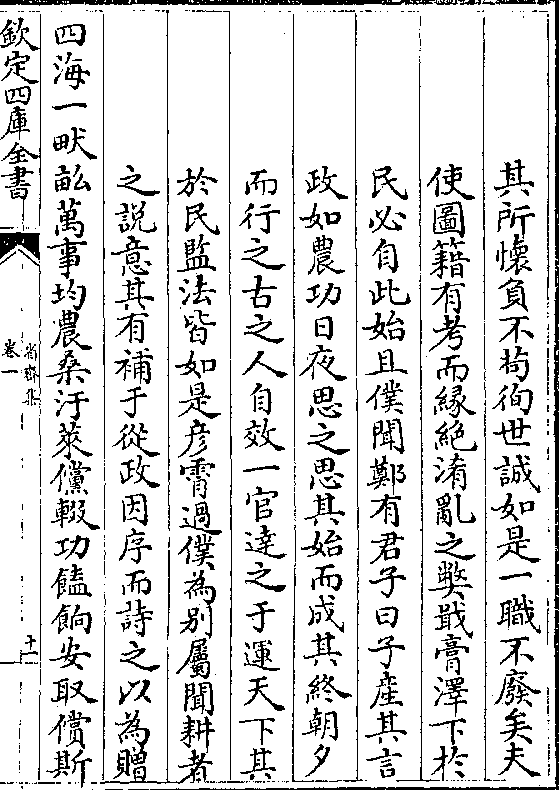 其所懷負不茍徇世誠如是一職不廢矣夫
使圖籍有考而緣絶淆亂之弊戢膏澤下於
民必自此始且僕聞鄭有君子曰子產其言
政如農功日夜思之思其始而成其終朝夕
而行之古之人自效一官達之于運天下其
於民監法皆如是彦霄過僕為别屬聞耕者
之説意其有補于從政因序而詩之以為贈
四海一畎畝萬事均農桑汙萊儻輟功饁餉安取償斯
欽定四庫全書
省齋集
卷一
十一